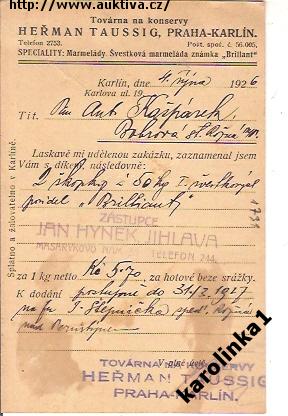 www.auktiva.cz
Továrna na konservy
HEŘMAN TAUSSIG, PRAHA-KARLÍN.
Telefon 2753.
Post. spoř. č. 56.005.
SPECIALITY: Marmelády. Švestková marmeláda známka „Brillant"
Karlín, dne 4. října 1926
Karlova ul. 19
Tit. Ant. Kašpárek,
Laskavě mi udělenou zakázku, zaznamenal jsem
Vám s díkem následovně:
2 škopky á 50 kg I.
„Brilliant"
ZÁSTUPCE
JAN HYNEK JIHLAVA
MASARYKOVO NÁM.
TELEFON 244.
Splatno a žalovatelno v Karlíně.
za 1 kg netto Kč 5.70 za hotové beze srážky.
K dodání postupně do 31/12 1927
nad Pernštýnem
V plné úctě
TOVÁRNA NA KONSERVY
HEŘMAN TAUSSIG
PRAHA-KARLÍN.
karolinka1